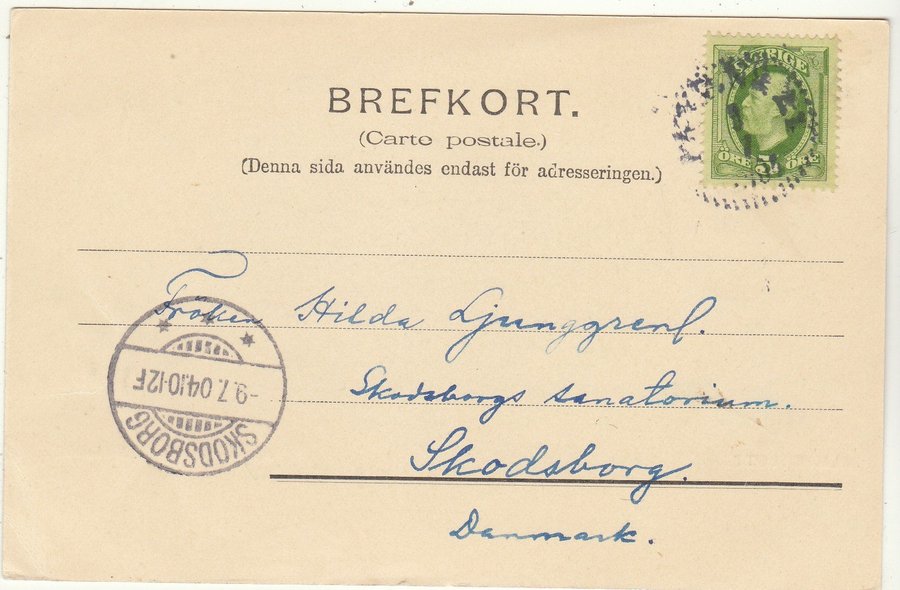 SVERIGE
ÖRE 5 ÖRE
BREFKORT.
(Carte postale.)
(Denna sida användes endast för adresseringen.)
Fröken Hilda Ljunggren
Skodsborgs Sanatorium.
Skodsborg.
Danmark.
-9.7.04.10-12F
SKODSBORG